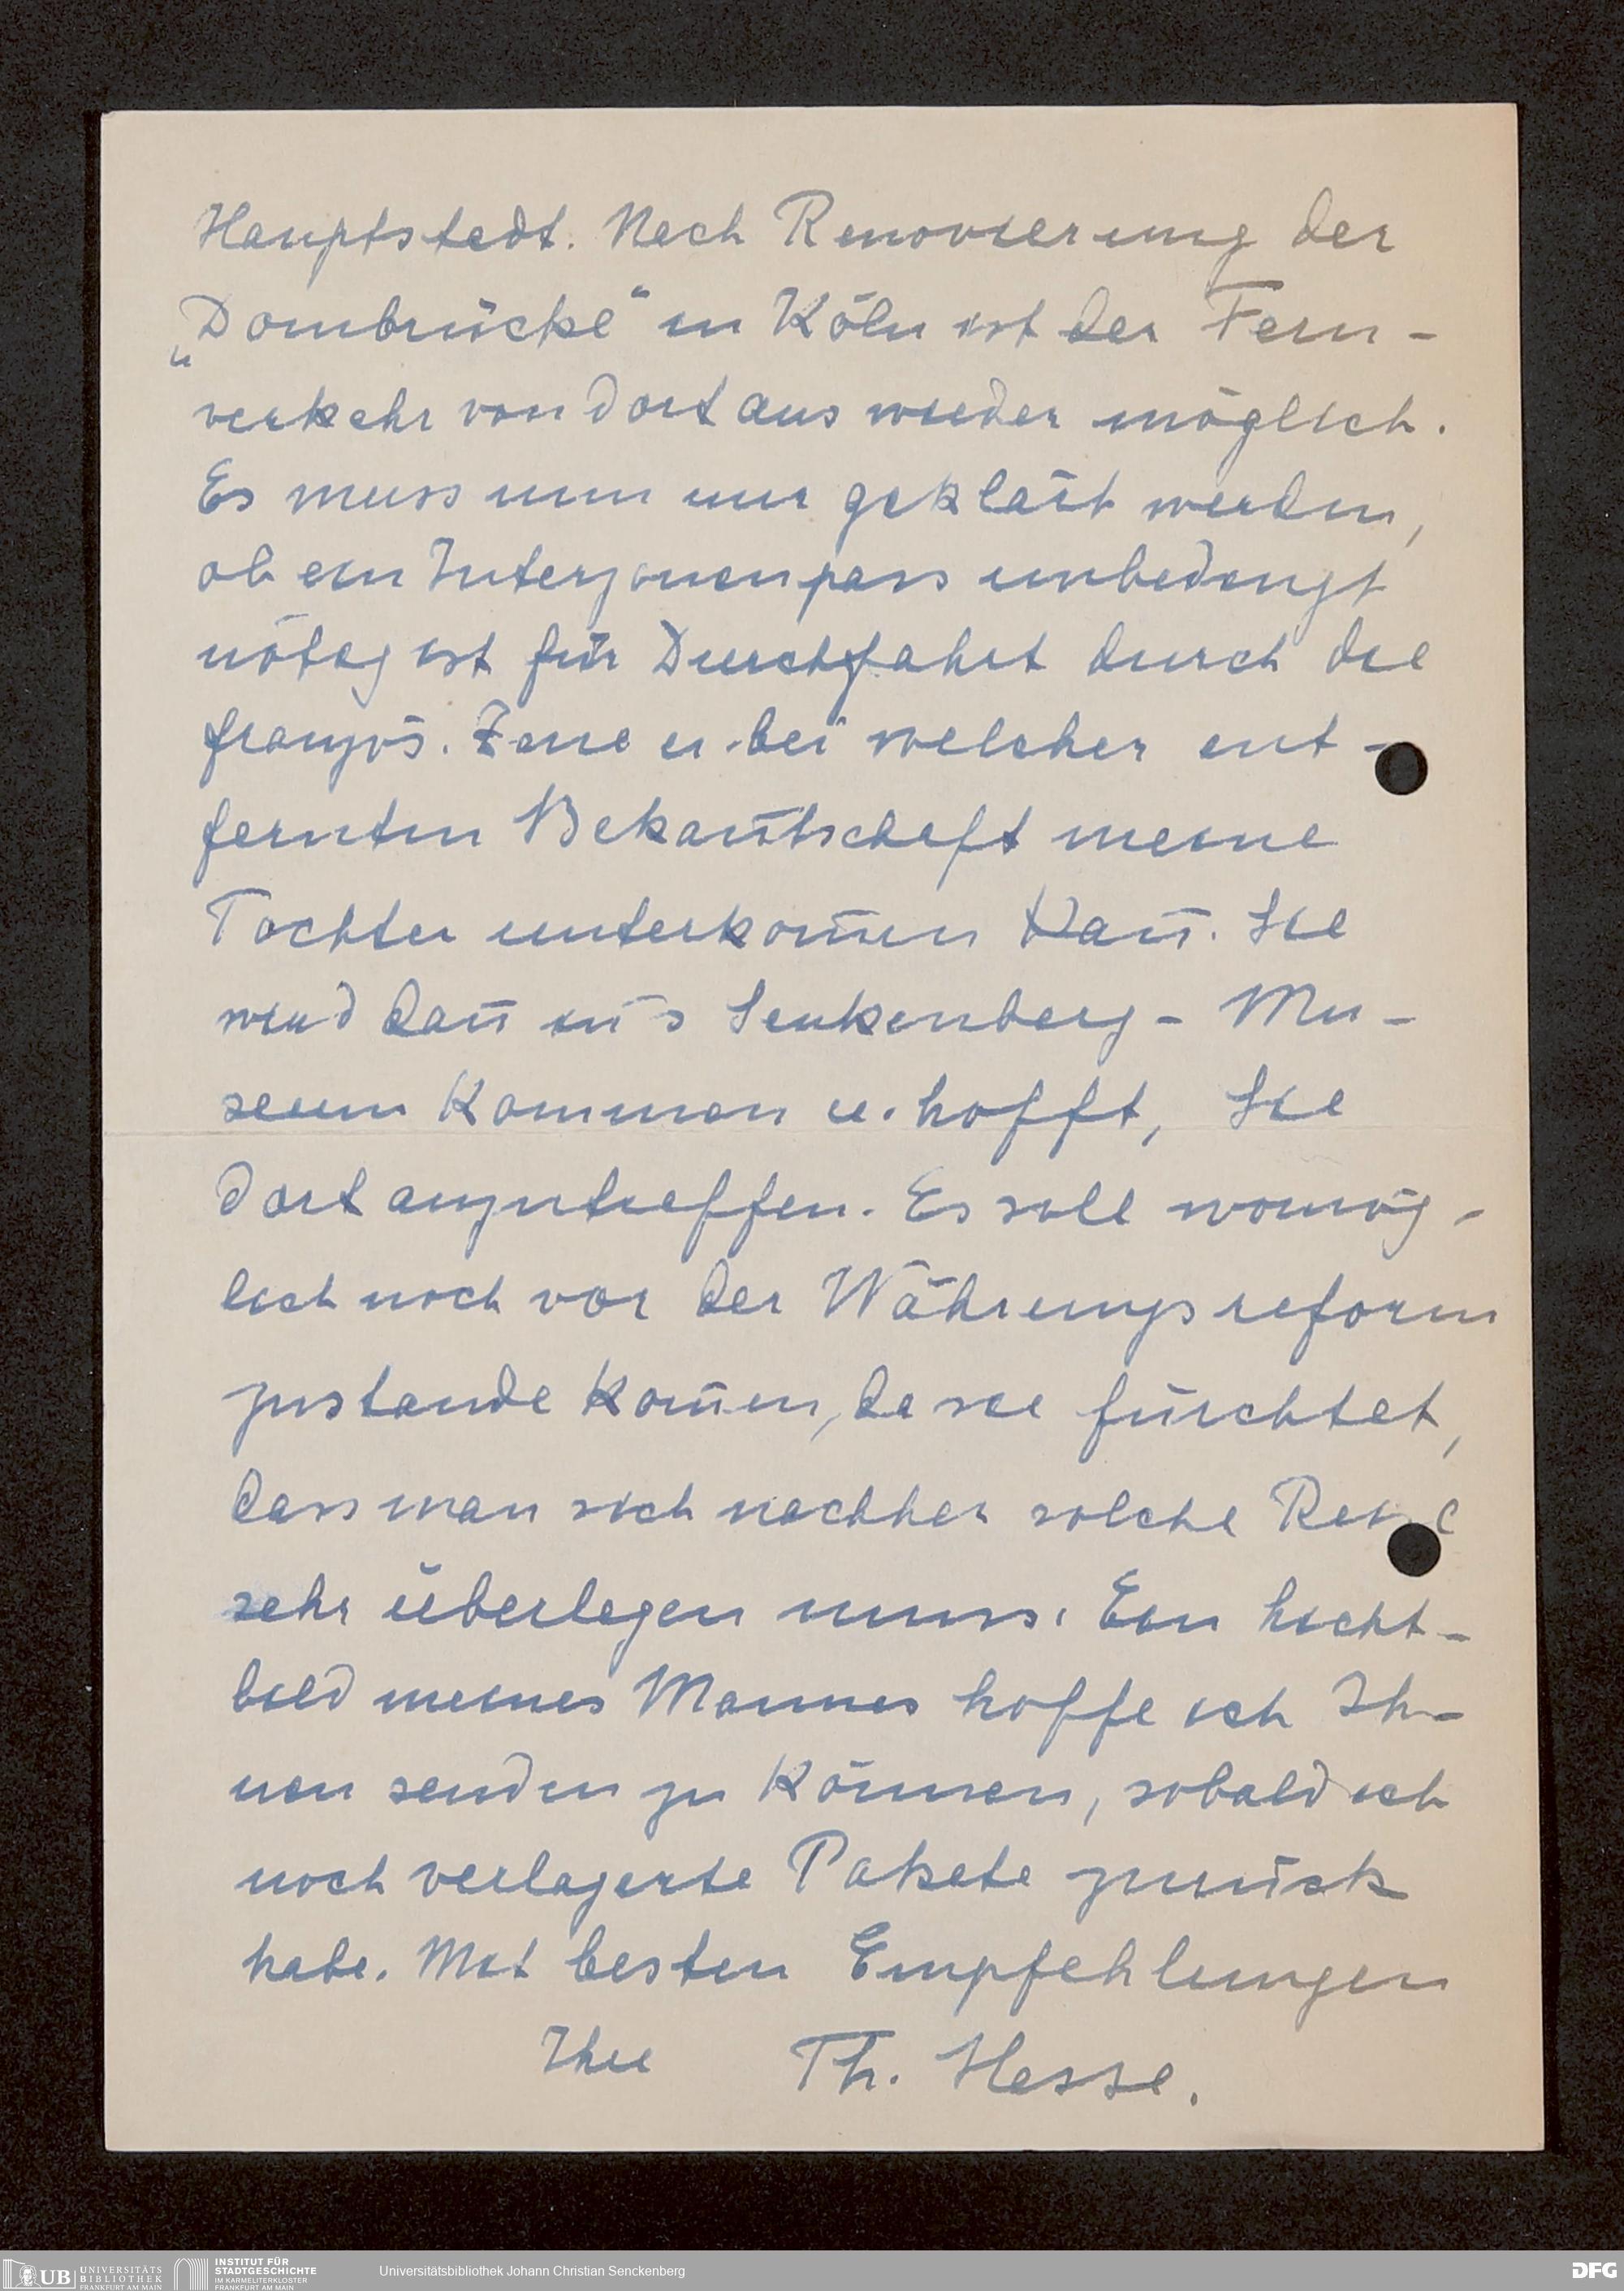 Hauptstadt. Nach Renovierung der
„Dombrücke“ in Köln ist der Fern-
verkehr von dort aus wieder möglich.
Es muss nun nur geklärt werden,
ob ein Interzonenpass unbedingt
nötig ist für Durchfahrt durch die
französ. Zone u. bei welcher ent-
fernten Bekan̄tschaft meine
Tochter unterkom̄en kan̄. Sie
wird dan̄ in's Senkenberg-Mu-
seum kommen u. hofft, Sie
dort anzutreffen. Es soll womög-
lich noch vor der Währungsreform
zustande kom̄en, da sie fürchtet,
dass man sich nachher solche Reise
sehr überlegen muss. Ein Licht-
bild meines Mannes hoffe ich Ih-
nen senden zu können, sobald ich
noch verlagerte Pakete zurück
habe. Mit besten Empfehlungen
Ihre Th. Hesse.
UB UNIVERSITÄTS BIBLIOTHEK FRANKFURT AM MAIN
INSTITUT FÜR STADTGESCHICHTE IM KARMELITERKLOSTER FRANKFURT AM MAIN
Universitätsbibliothek Johann Christian Senckenberg
DFG